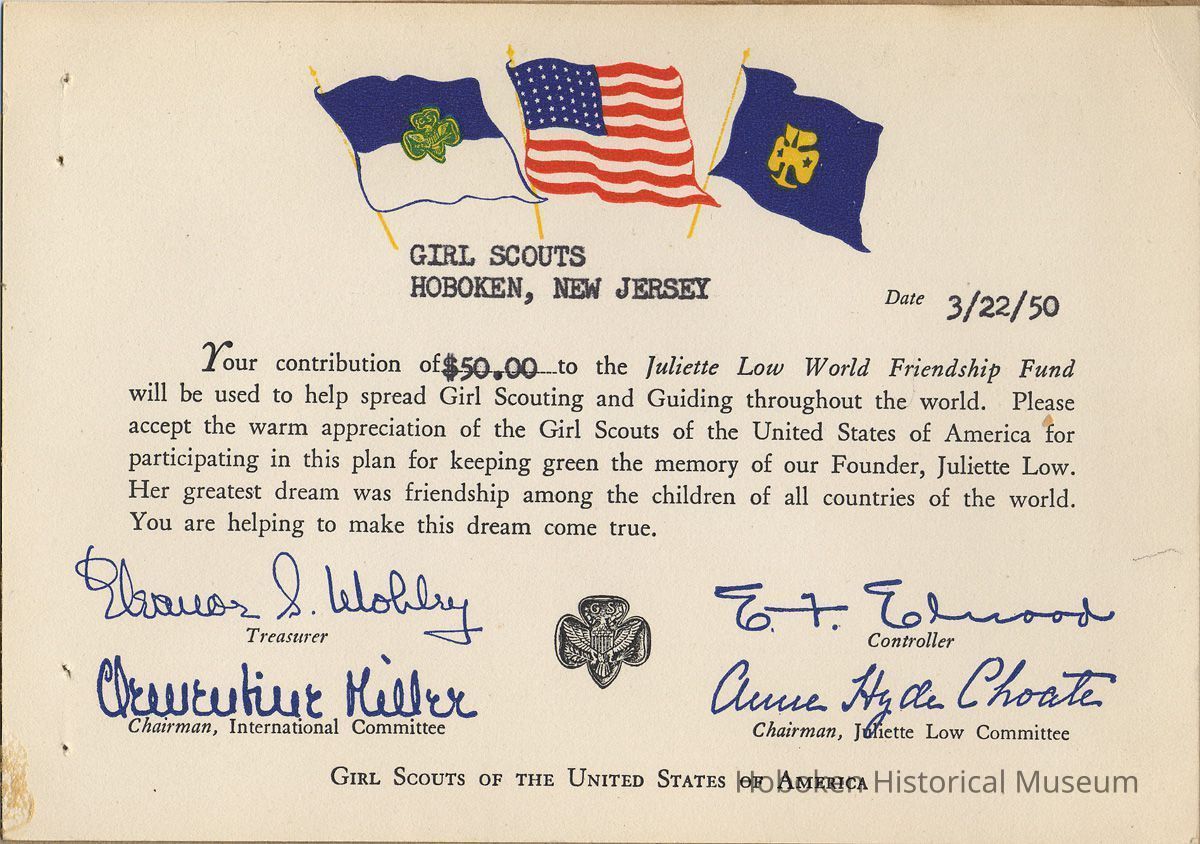 GIRL SCOUTS
HOBOKEN, NEW JERSEY
Date 3/22/50
Your contribution of $50.00 to the Juliette Low World Friendship Fund
will be used to help spread Girl Scouting and Guiding throughout the world. Please
accept the warm appreciation of the Girl Scouts of the United States of America for
participating in this plan for keeping green the memory of our Founder, Juliette Low.
Her greatest dream was friendship among the children of all countries of the world.
You are helping to make this dream come true.
Eleanor S.
Treasurer
E. F. Elwood
Controller
GS
Miller
Chairman, International Committee
Anne Hyde Choate
Chairman, Juliette Low Committee
GIRL SCOUTS OF THE UNITED STATES OF AMERICA
Hoboken Historical Museum